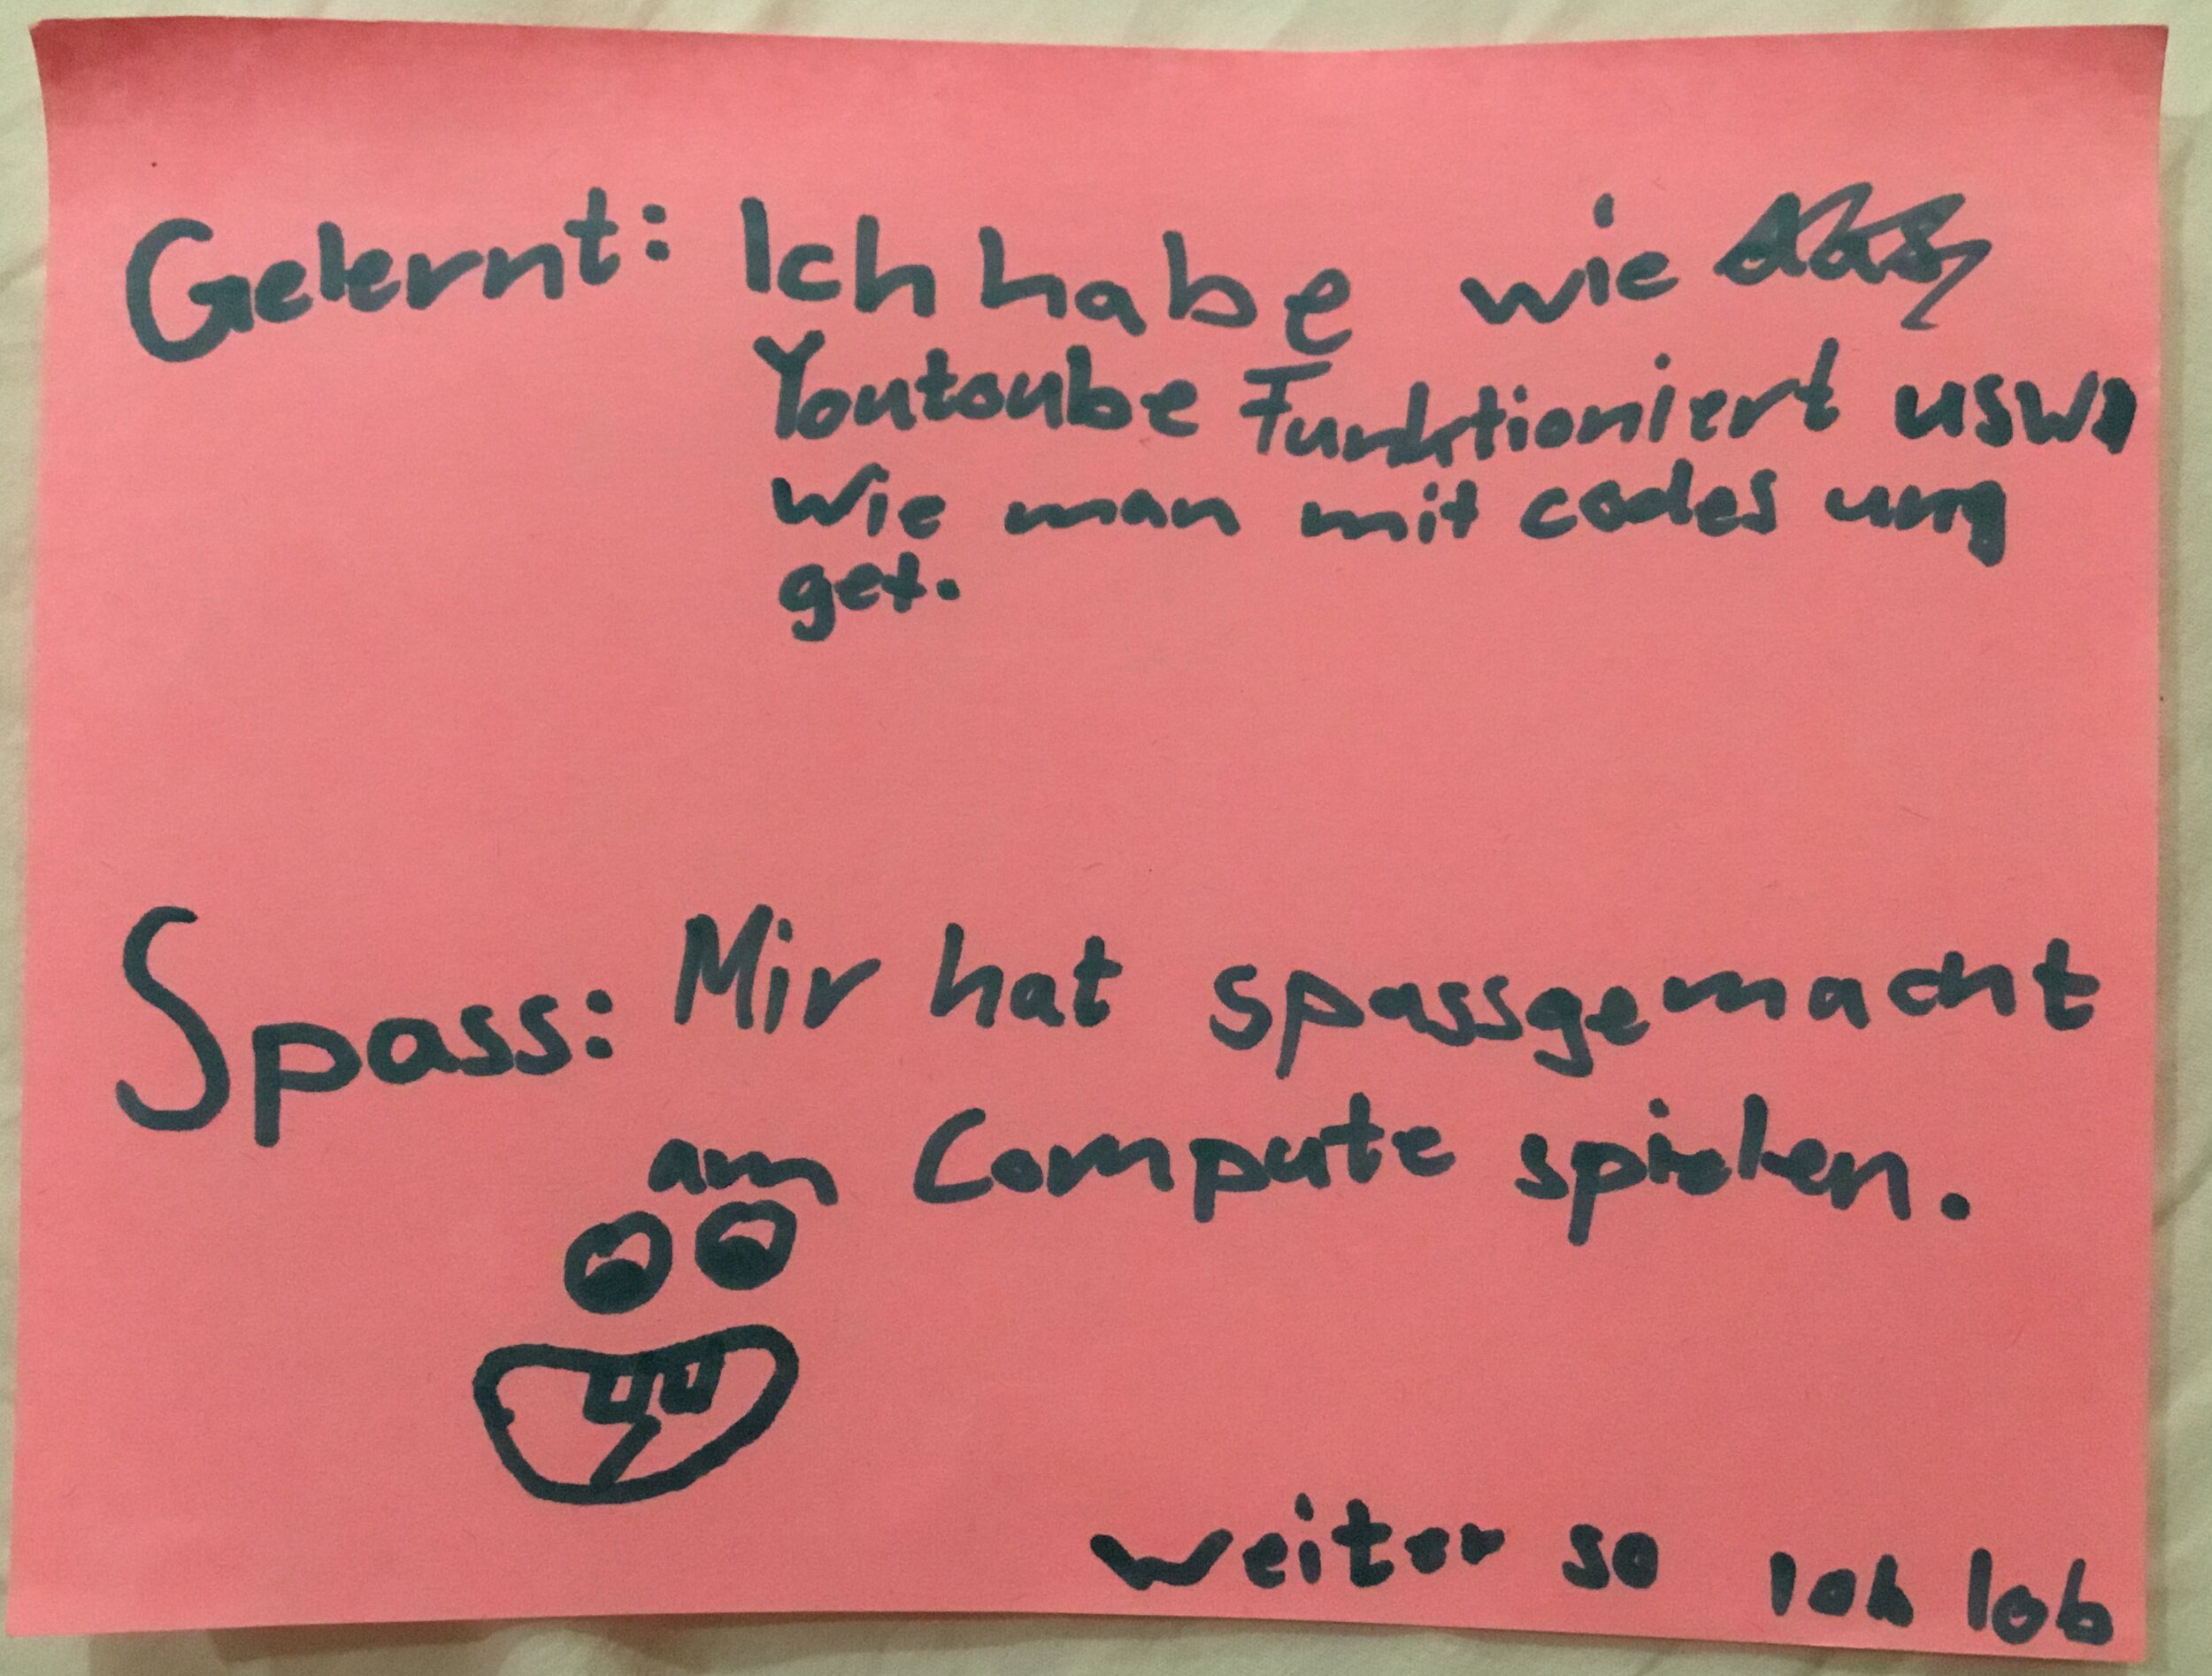 Gelernt: Ich habe wie das
Youtoube Funktioniert usw.
wie man mit codes umg
get.
Spass: Mir hat spassgemacht
am Compute spielen.
weiter so lob lob